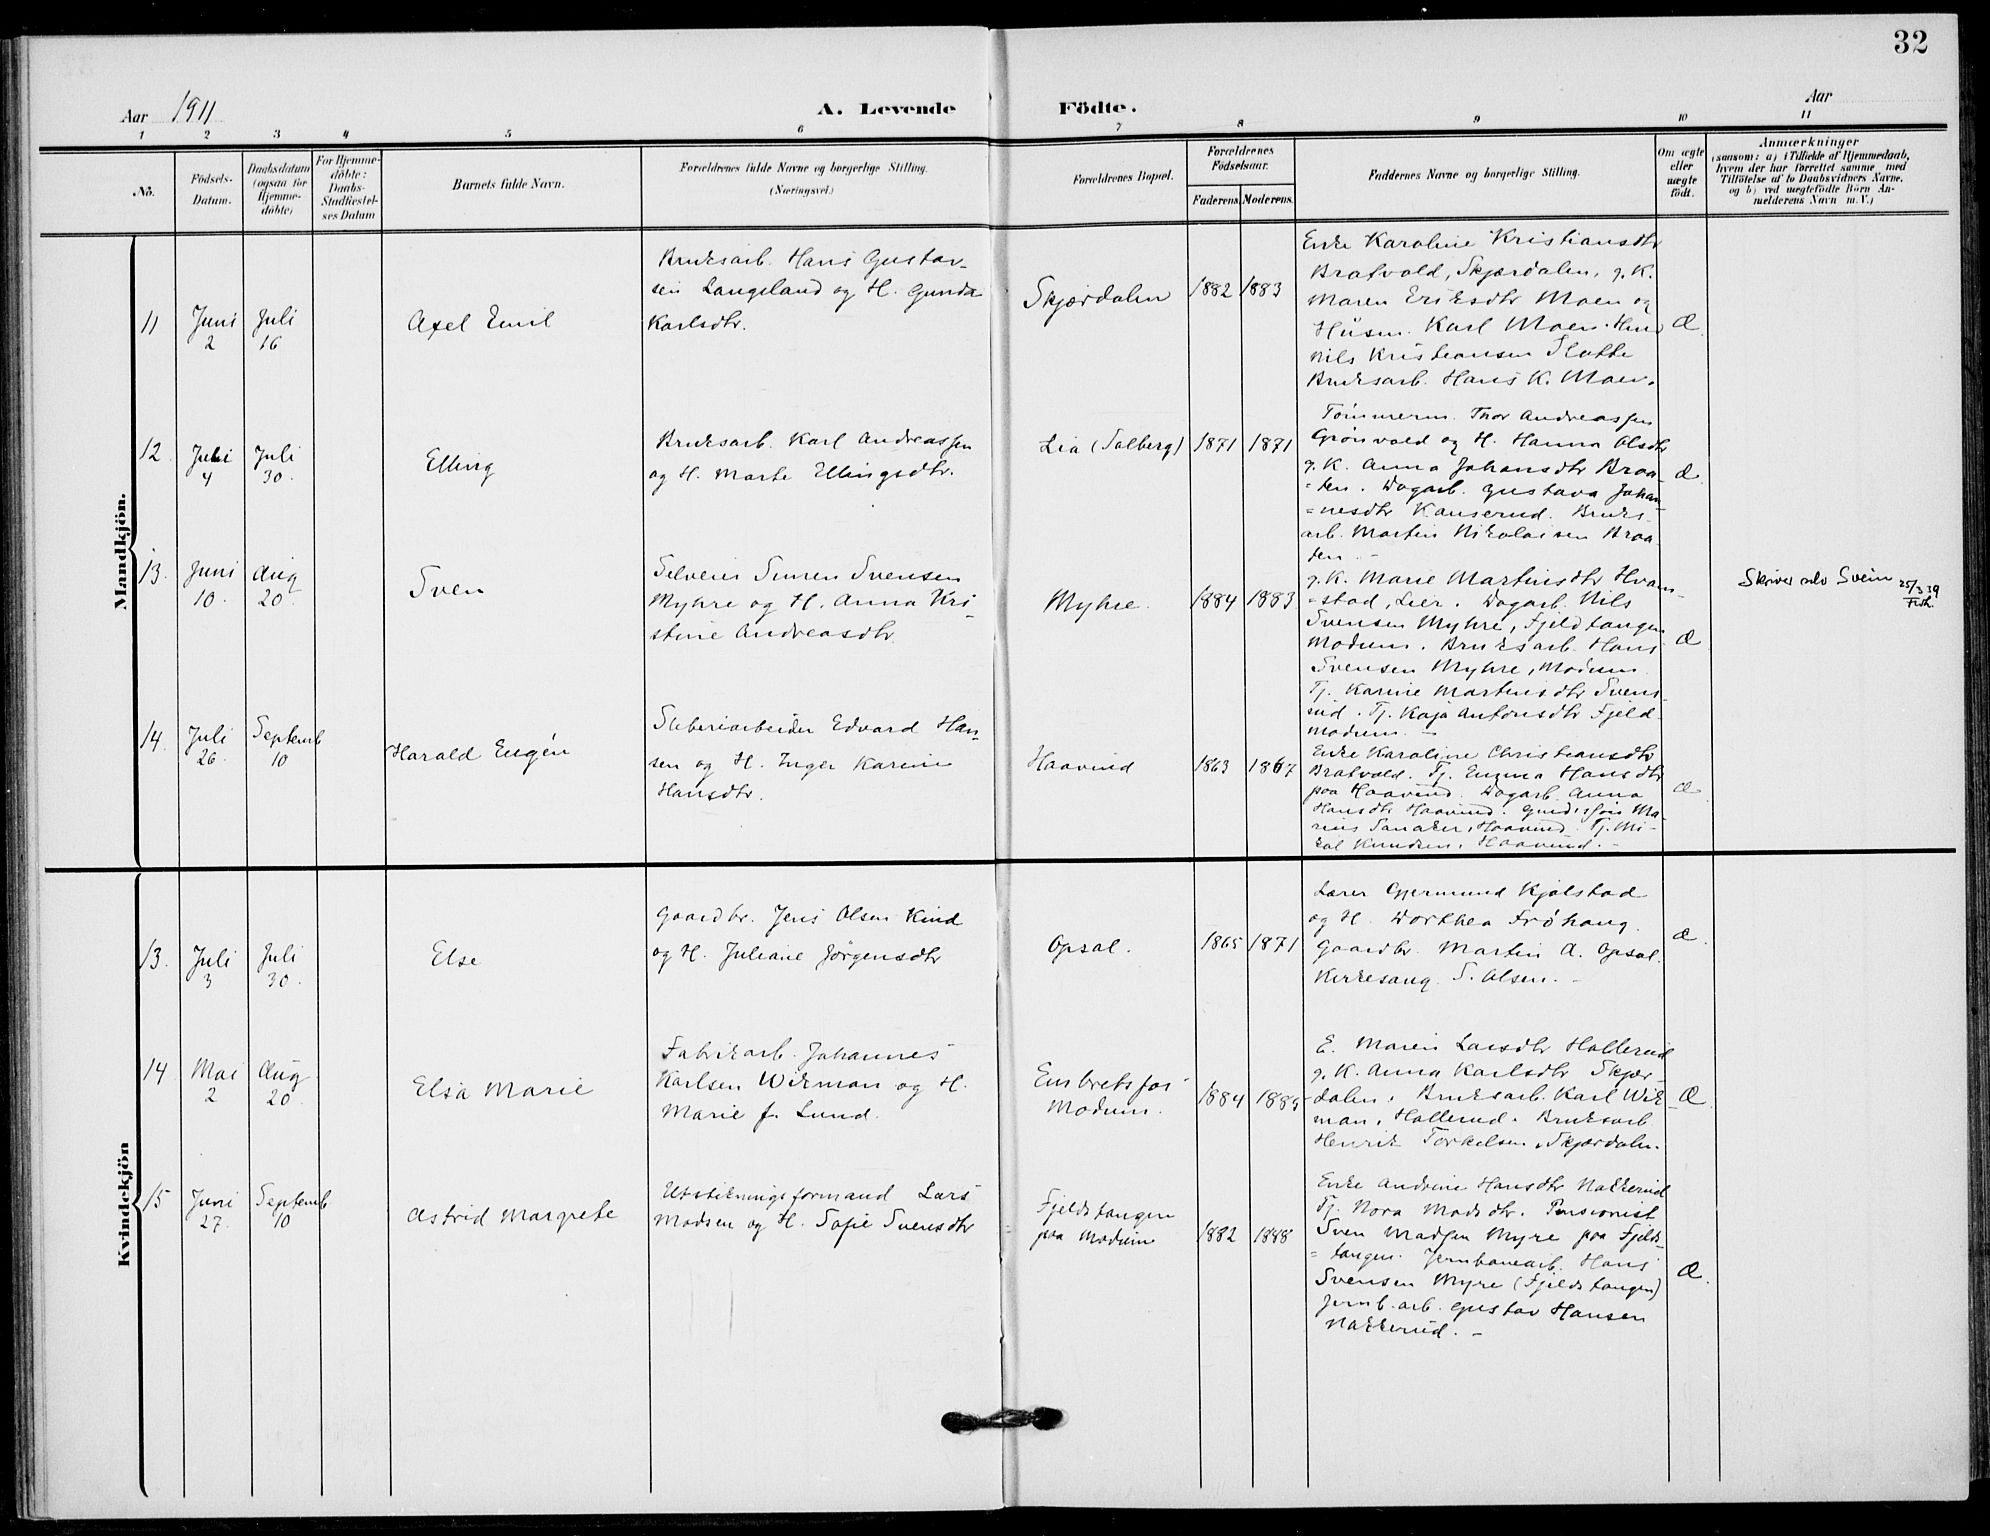 32
Aar 1911
A. Levende Födte.
Aar
1 2 3 4 5 6 7 8 9 10 11
No.
Födsels-
Datum.
Daabsdatum
(ogsaa for
Hjemme-
döbte)
For Hjemme-
döbte:
Daabs-
Stadfæstel-
ses Datum
Barnets fulde Navn.
Forældrenes fulde Navne og borgerlige Stilling.
(Næringsvei.)
Forældrenes Bopæl.
Forældrenes
Födselsaar.
Faderens. Moderens.
Faddernes Navne og borgerlige Stilling.
Om ægte
eller
uægte
födt.
Anmærkninger
(saasom: a) i Tilfælde af Hjemmedaab,
hvem der har forrettet samme med
Tilföielse af to Daabsvidners Navne,
og b) ved uegtefödte Börn An-
melderens Navn m. V.)
Mandkjön.
11
Juni
2
Juli
16
Axel Emil
Bruksarb. Hans Gustav-
sen Langeland og H. Gunda
Karlsdtr.
Skjærdalen
1882 1883
Enke Karoline Kristiansdtr
Bratvold, Skjærdalen, g. K.
Maren Eriksdtr Moen og
Husm. Karl Moen.
Nils Kristiansen Slotte
Bruksarb. Hans K. Moen.
Æ
12.
Juli
4
Juli
30.
Elling
Bruksarb. Karl Andreassen
og H. Marte Ellingsdtr.
Lia (Solberg)
1871 1871
Tömmerm. Thor Andreassen
Grönvold og H. Hanna Olsdtr
g. K. Anna Johansdtr Braa-
=ten. Dagarb. Gustava Johan-
=nesdtr Kanserud. Bruks-
arb. Martin Nikolaisen Braa-
ten. -
Æ
13.
Juni
10.
Aug
20.
Sven
Selveier Simen Svensen
Myhre og H. Anna Kri-
stine Andreasdtr.
Myhre.
1884 1883
g. K. Marie Martinsdtr Hvam-
=stad, Lier. Dagarb. Nils
Svensen Myhre, Fjeldtangen
Modum. Bruksarb. Hans
Svensen Myhre, Modum.
Tj. Karine Martinsdtr Svens-
rud. Tj. Kaja Antonsdtr Fjeld-
Modum. -
Æ
Skriver selv Svein 25/3 39
14.
Juli
26.
Septemb
10
Harald Eugén
Sliberiarbeider Edvard Han-
sen og H. Inger Karine
Hansdtr.
Haavind
1863 1867
Enke Karoline Christiansdtr
Bratvold. Tj. Emma Hansdtr
paa Haavind. Dagarb. Anna
Hansdtr Haavind. Ma-
rius Sanaker, Haavind. Tj. Mi-
kal Knudsen, Haavind. -
Æ
Kvindekjön
13.
Juli
3
Juli
30.
Else
Gaardbr. Jens Olsen Kind
og H. Juliane Jörgensdtr
Opsal.
1865 1871
Lærer Gjermund Kjölstad
og H. Dorthea Fröhaug.
Gaardbr. Martin A. Opsal.
Kirkesang. S. Olsen. -
Æ.
14
Mai
2
Aug
20.
Elsa Marie
Fabrikarb. Johannes
Karlsen Wikman og H.
Marie f. Lund.
Embretsfos
Modum.
1884 1885
E. Maren Larsdtr Hallerud
g. K. Anna Karlsdtr Skjær-
dalen. Bruksarb. Karl Wik-
man, Hallerud. Bruksarb.
Henrik Torkelsen, Skjærdalen.
Æ.
15
Juni
27.
Septemb
10
Astrid Margrete
Utstikningsformand Lars
Madsen og H. Sofie Svensdtr
Fjeldstangen
paa Modum
1882 1888
Enke Andrine Hansdtr Nakkerud
Tj. Nora Madsdtr. Pensionist
Sven Madsen Myre paa Fjelds-
=tangen. Jernbanearb. Hans
Svensen Myre (Fjeldstangen)
Jernb. arb. Gustav Hansen
Nakkerud. -
Æ.